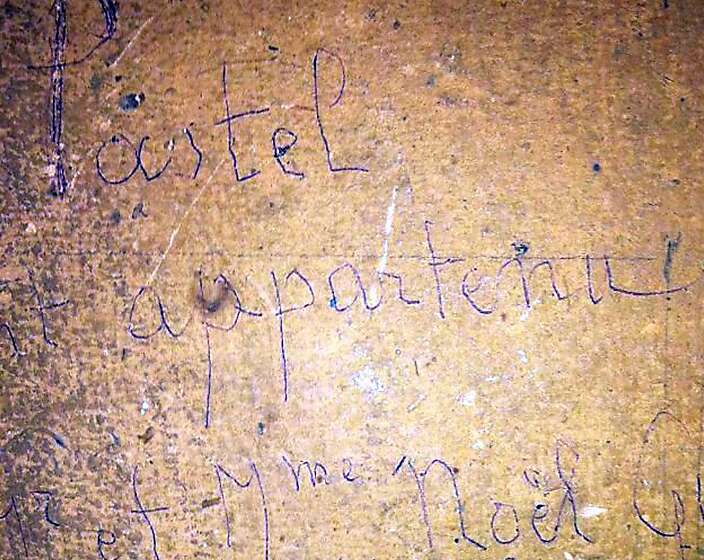 Pastel
appartenu
et Mme Noël